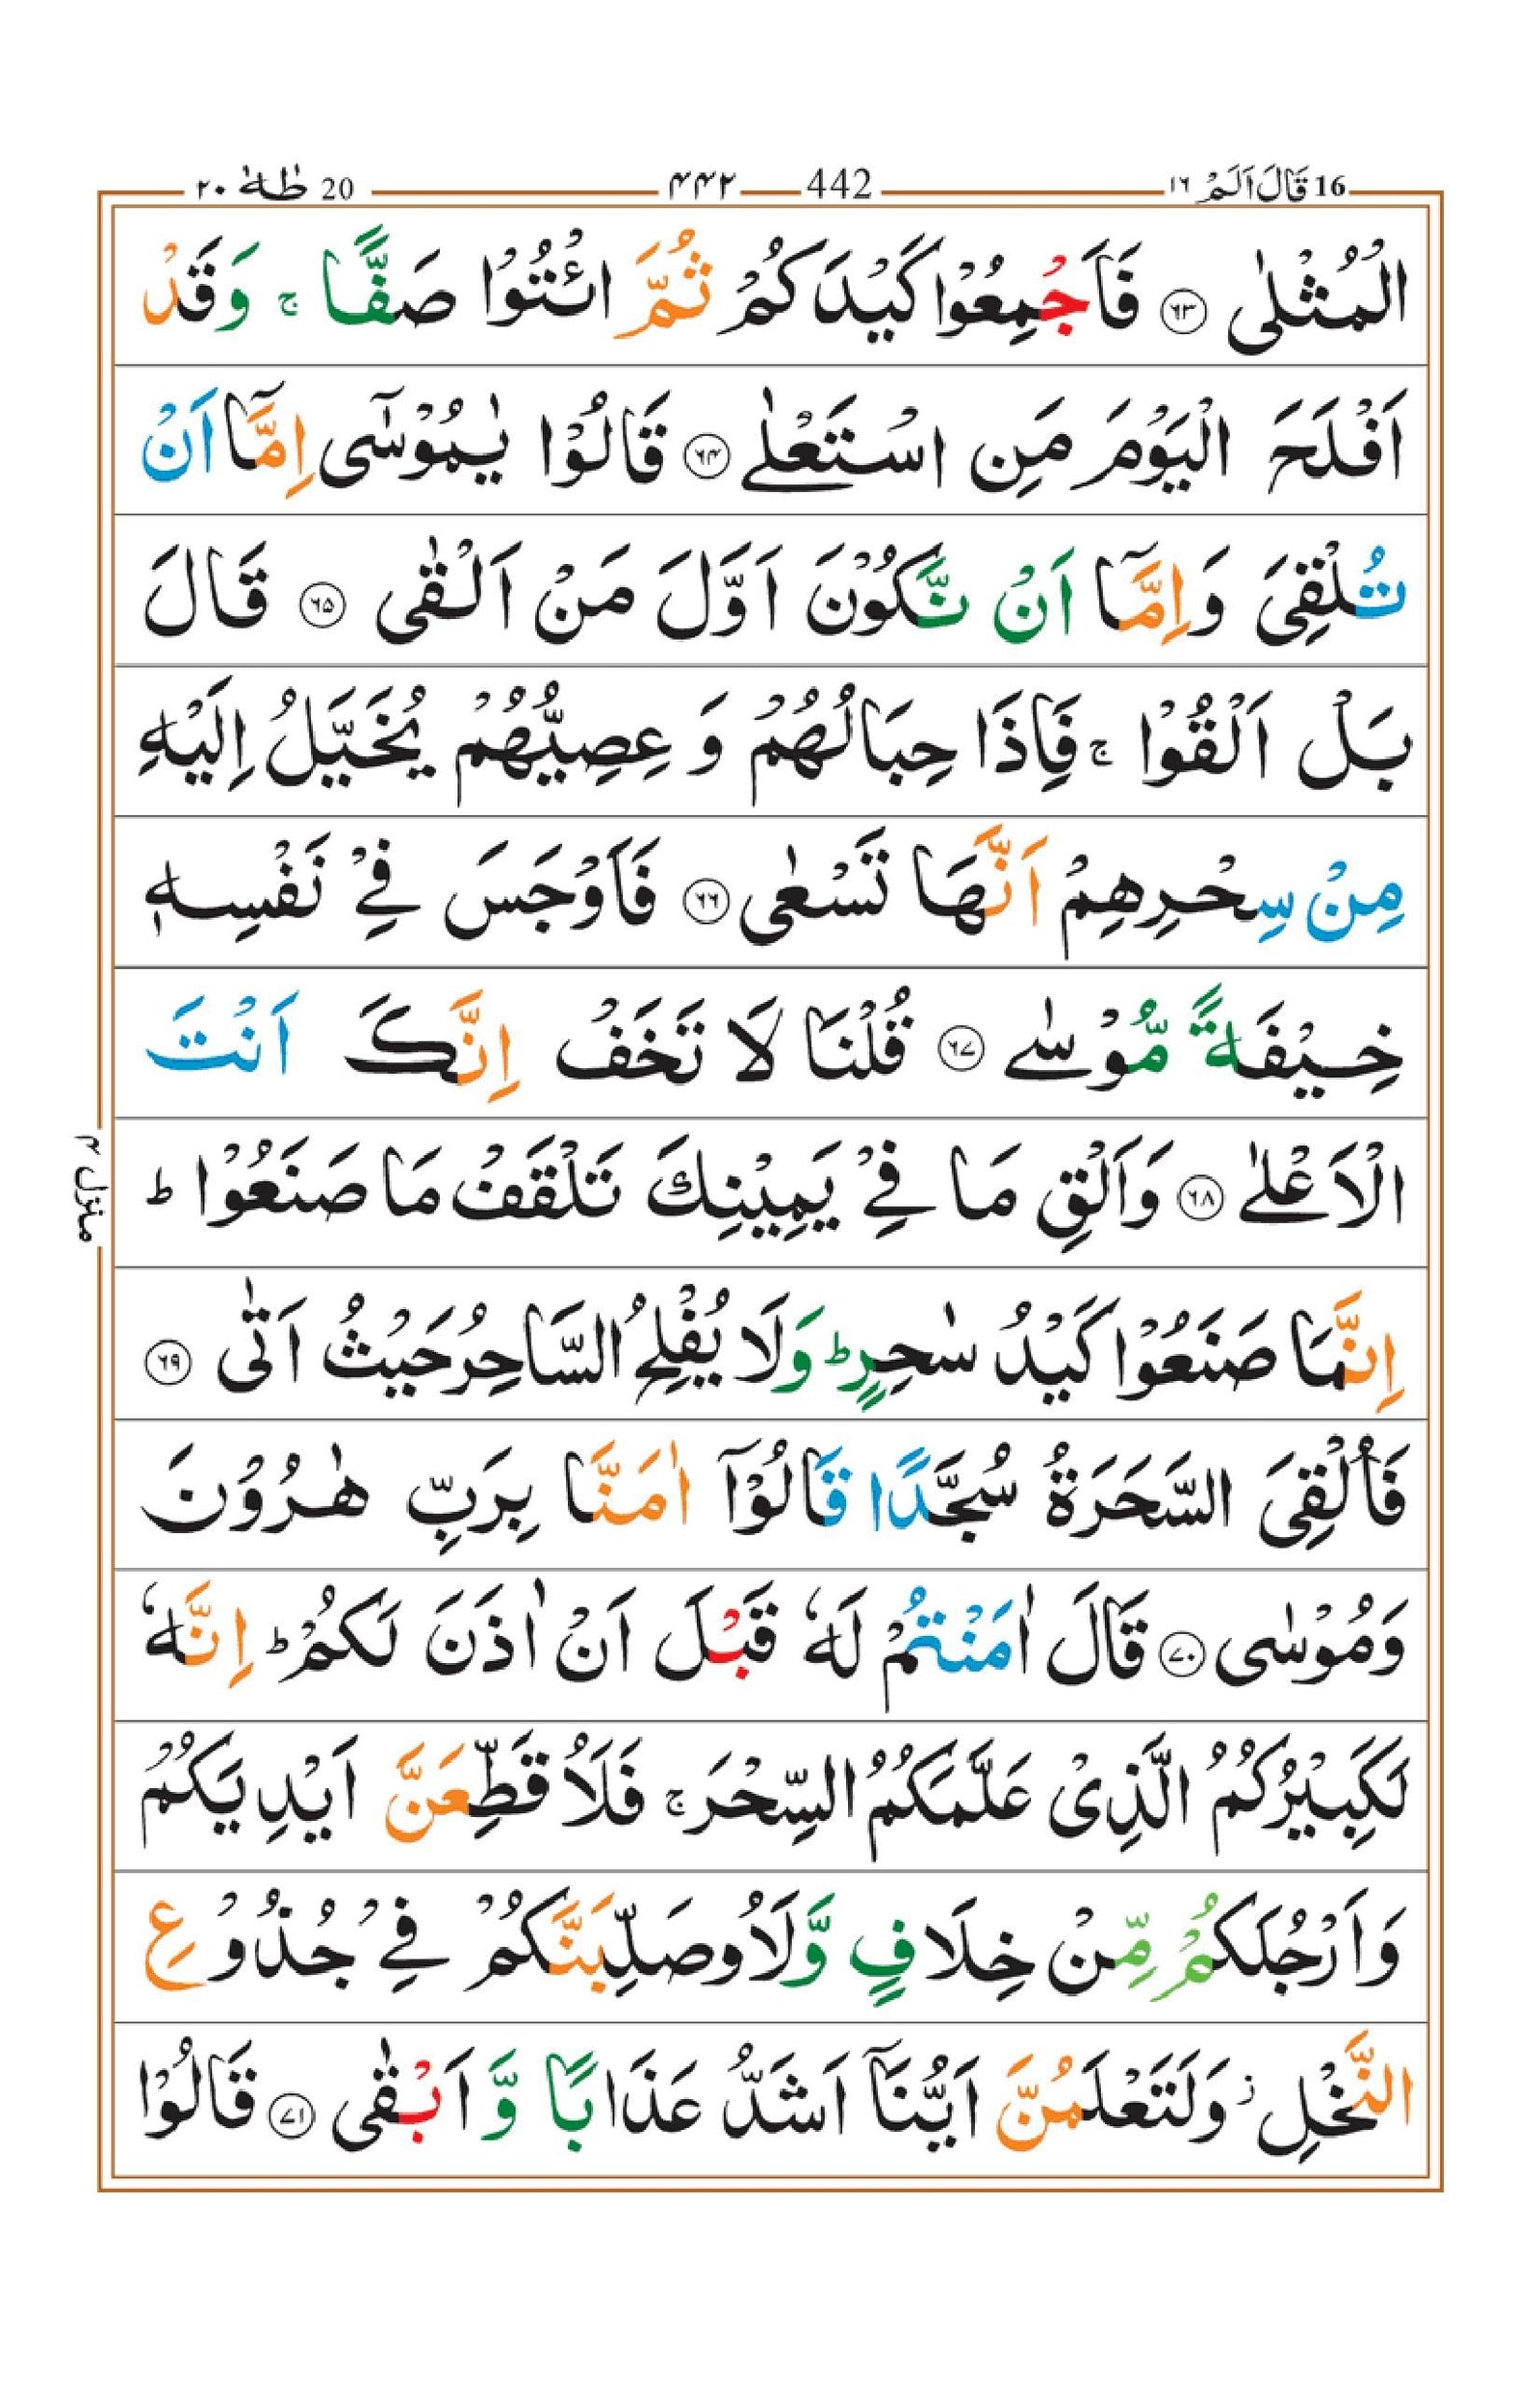 16 قَالَ اَلَمْ ١٦ 442 ۴۴۲ 20 طٰهٰ ٢٠
الْمُثْلٰى ﴿۶۳﴾ فَاَجْمِعُوْا كَيْدَكُمْ ثُمَّ ائْتُوْا صَفًّا ۚ وَقَدْ
اَفْلَحَ الْيَوْمَ مَنِ اسْتَعْلٰى ﴿۶۴﴾ قَالُوْا يٰمُوْسٰٓى اِمَّاۤ اَنْ
تُلْقِىَ وَاِمَّاۤ اَنْ نَّكُوْنَ اَوَّلَ مَنْ اَلْقٰى ﴿۶۵﴾ قَالَ
بَلْ اَلْقُوْا ۚ فَاِذَا حِبَالُهُمْ وَ عِصِيُّهُمْ يُخَيَّلُ اِلَيْهِ
مِنْ سِحْرِهِمْ اَنَّهَا تَسْعٰى ﴿۶۶﴾ فَاَوْجَسَ فِىْ نَفْسِهٖ
خِيْفَةً مُّوْسٰى ﴿۶۷﴾ قُلْنَا لَا تَخَفْ اِنَّكَ اَنْتَ
الْاَعْلٰى ﴿۶۸﴾ وَاَلْقِ مَا فِىْ يَمِيْنِكَ تَلْقَفْ مَا صَنَعُوْا ؕ
اِنَّمَا صَنَعُوْا كَيْدُ سٰحِرٍ ؕ وَلَا يُفْلِحُ السَّاحِرُ حَيْثُ اَتٰى ﴿۶۹﴾
فَاُلْقِىَ السَّحَرَةُ سُجَّدًا قَالُوْۤا اٰمَنَّا بِرَبِّ هٰرُوْنَ
وَمُوْسٰى ﴿۷۰﴾ قَالَ اٰمَنْتُمْ لَهٗ قَبْلَ اَنْ اٰذَنَ لَكُمْ ؕ اِنَّهٗ
لَكَبِيْرُكُمُ الَّذِىْ عَلَّمَكُمُ السِّحْرَ ۚ فَلَاُقَطِّعَنَّ اَيْدِيَكُمْ
وَاَرْجُلَكُمْ مِّنْ خِلَافٍ وَّلَاُوصَلِّبَنَّكُمْ فِىْ جُذُوْعِ
النَّخْلِ ۫ وَلَتَعْلَمُنَّ اَيُّنَاۤ اَشَدُّ عَذَابًا وَّ اَبْقٰى ﴿۷۱﴾ قَالُوْا
منزل ۴